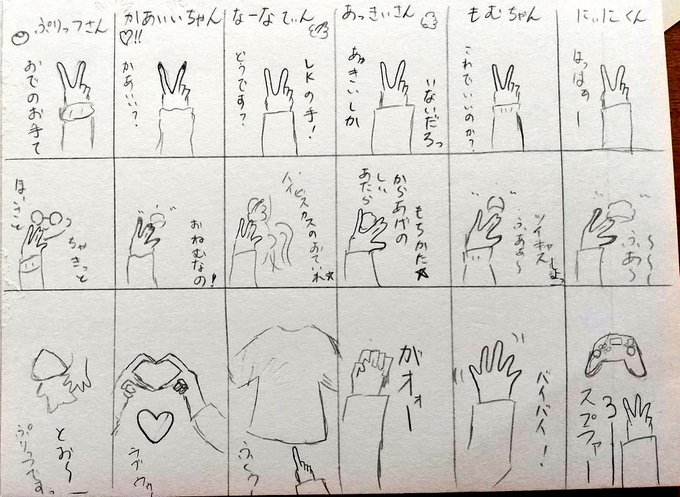 ぷりっつさん
かあいいちゃん♡!!
なーなてぃん
あっきぃさん
もむちゃん
にぃにくん
おでのお手て
かあいい?
LKの手!
どうです?
いないだろっ
あっきいしか
これでいいのか?
はっはすー
ちゃきっと
おねむなの!
ハイビスカスのおていれ☆
もちかた☆
からあげの
あたらしい
ツイキャスしよっ
ふぁぁ〜
〜〜〜
ふぁ〜
とお〜
ぷりっつですっ
ラブウゥ
ふぅ〜
がオォー
バイバイ!
スプファー
3